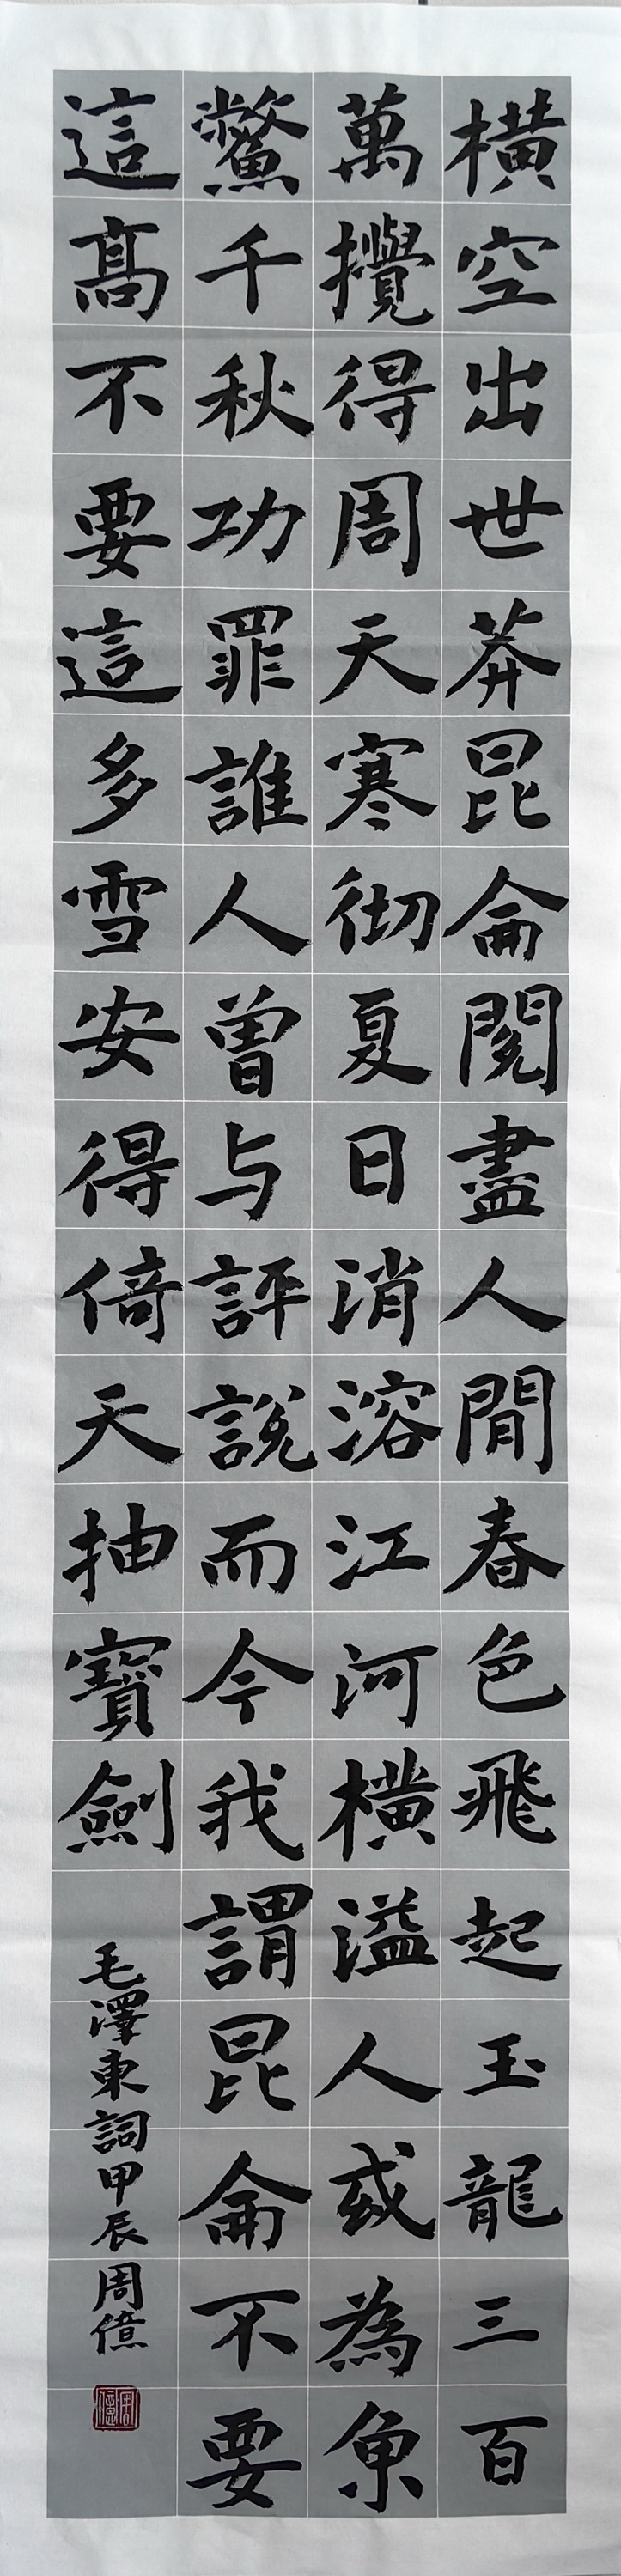 橫空出世莽昆侖閱盡人間春色飛起玉龍三百
萬攪得周天寒彻夏日消溶江河橫溢人或為魚
鱉千秋功罪誰人曾与評說而今我謂昆侖不要
這髙不要這多雪安得倚天抽寶劍
毛澤東詞甲辰周億
周億